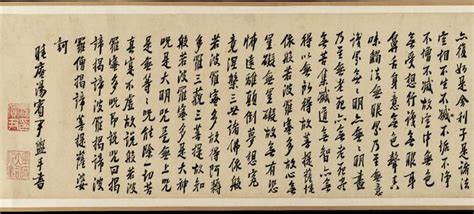 亦復如是舍利子是諸法
空相不生不滅不垢不淨
不增不減故空中無色
無受想行識無眼耳
鼻舌身意無色聲香
味觸法無眼界
無無明盡
乃至無老死亦無老死
盡無苦集滅道無智
亦無得
以無所得故菩提薩埵
依般若波羅蜜多故心無
罣礙無罣礙故無有恐
怖遠離顛倒夢想究
竟涅槃三世諸佛依般
若波羅蜜多故得阿耨
多羅三藐三菩提故知
般若波羅蜜多是大神
咒是大明咒是無上咒
是無等等咒能除一切苦
真實不虛故說般若波
羅蜜多咒即說咒曰揭
諦揭諦波羅揭諦波
羅僧揭諦菩提薩婆
訶
睡庵湯賓尹盥手書